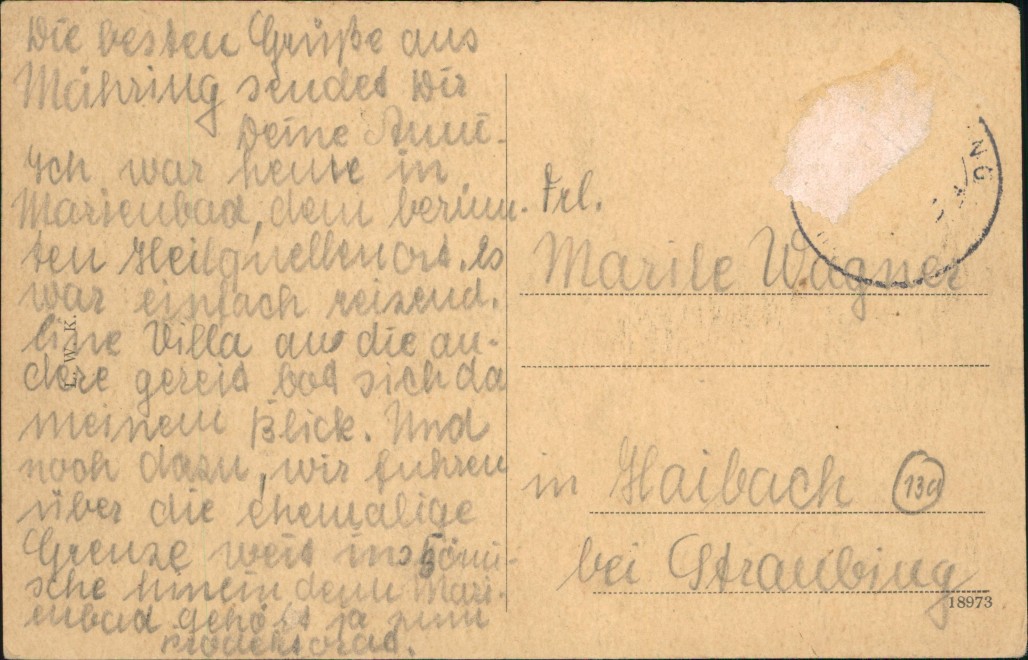 Die besten Grüße aus
Mähring sendet Dir
Deine Anni.
Ich war heute in
Marienbad, dem berühm-
ten Heilquellenort. Es
war einfach reizend.
Eine Villa an die an-
dere gereit bot sich da
meinem Blick. Und
noch dazu, wir fuhren
über die ehemalige
Grenze weit ins Böhmi-
sche hinein denn Mari-
enbad gehört ja zum
Protektorat.
L. W. K.
Frl.
Marile Wagner
in Haibach (13a)
bei Straubing
18973
NG